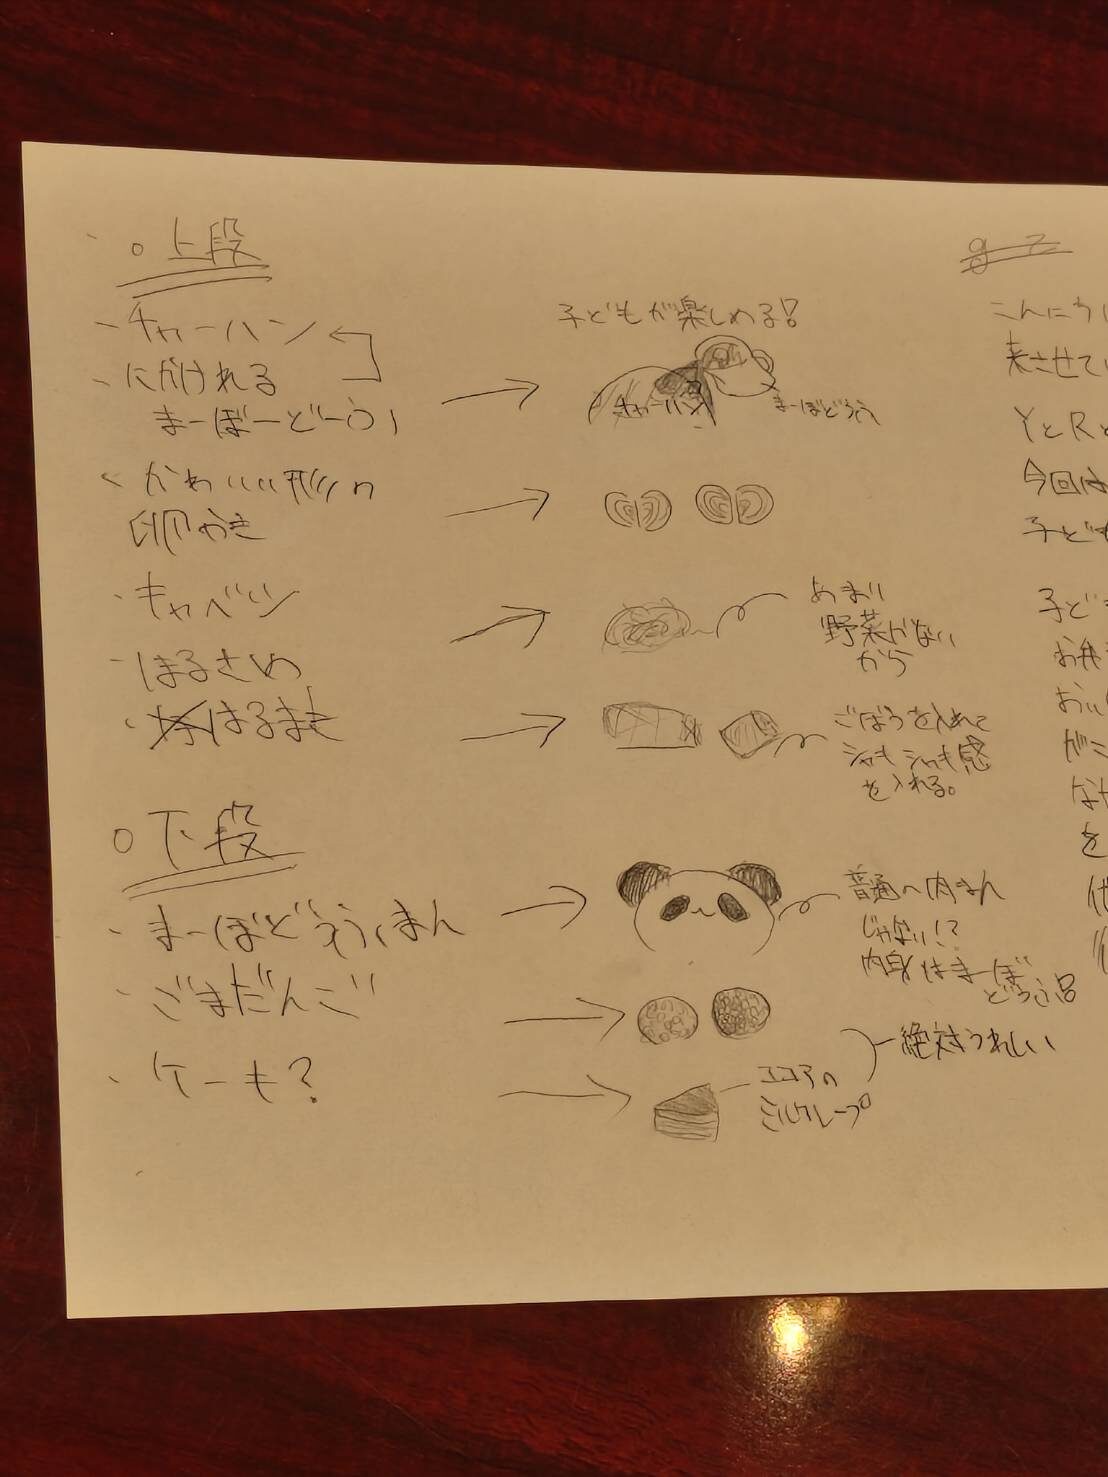 ○上段
・チャーハン
・にかけれる
まーぼーどーふ
・かわいい形の
卵やき
・キャベツ
・はるさめ
・はるまき
子どもが楽しめる!
チャーハン
まーぼどうふ
あまい
野菜がない
から
ごぼうを入れて
シャキシャキ感
を入れる。
○下段
・まーぼどうふまん
・ごまだんご
・ケーキ?
普通の肉まん
じゃない!?
内身はまーぼ
どうふ
絶対うれしい
ココアの
ミルクレープ
こんにち
来させてい
YとRと
今回は
子ども
子ども
お弁
おい
がこ
な
を